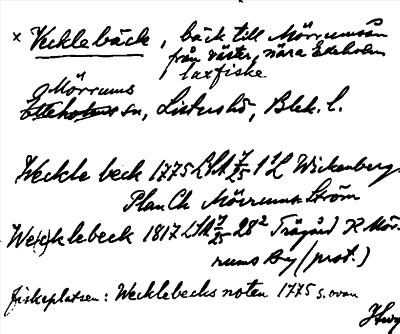 × Vecklebäck, bäck till Mörrumsån
från väster, nära Ekeholm
laxfiske
Mörrums
sn, Listers hd, Blek. l.
Veckle beck 1775 LSA 7/25 1¹ Wickenberg
Plan Ch Mörrums Ström
We(c)klebeck 1817 LSA 7/25 28² Trägård K Mör-
rums By (prot.)
Fiskeplatsen: Wecklebecks noten 1775 s. ovan